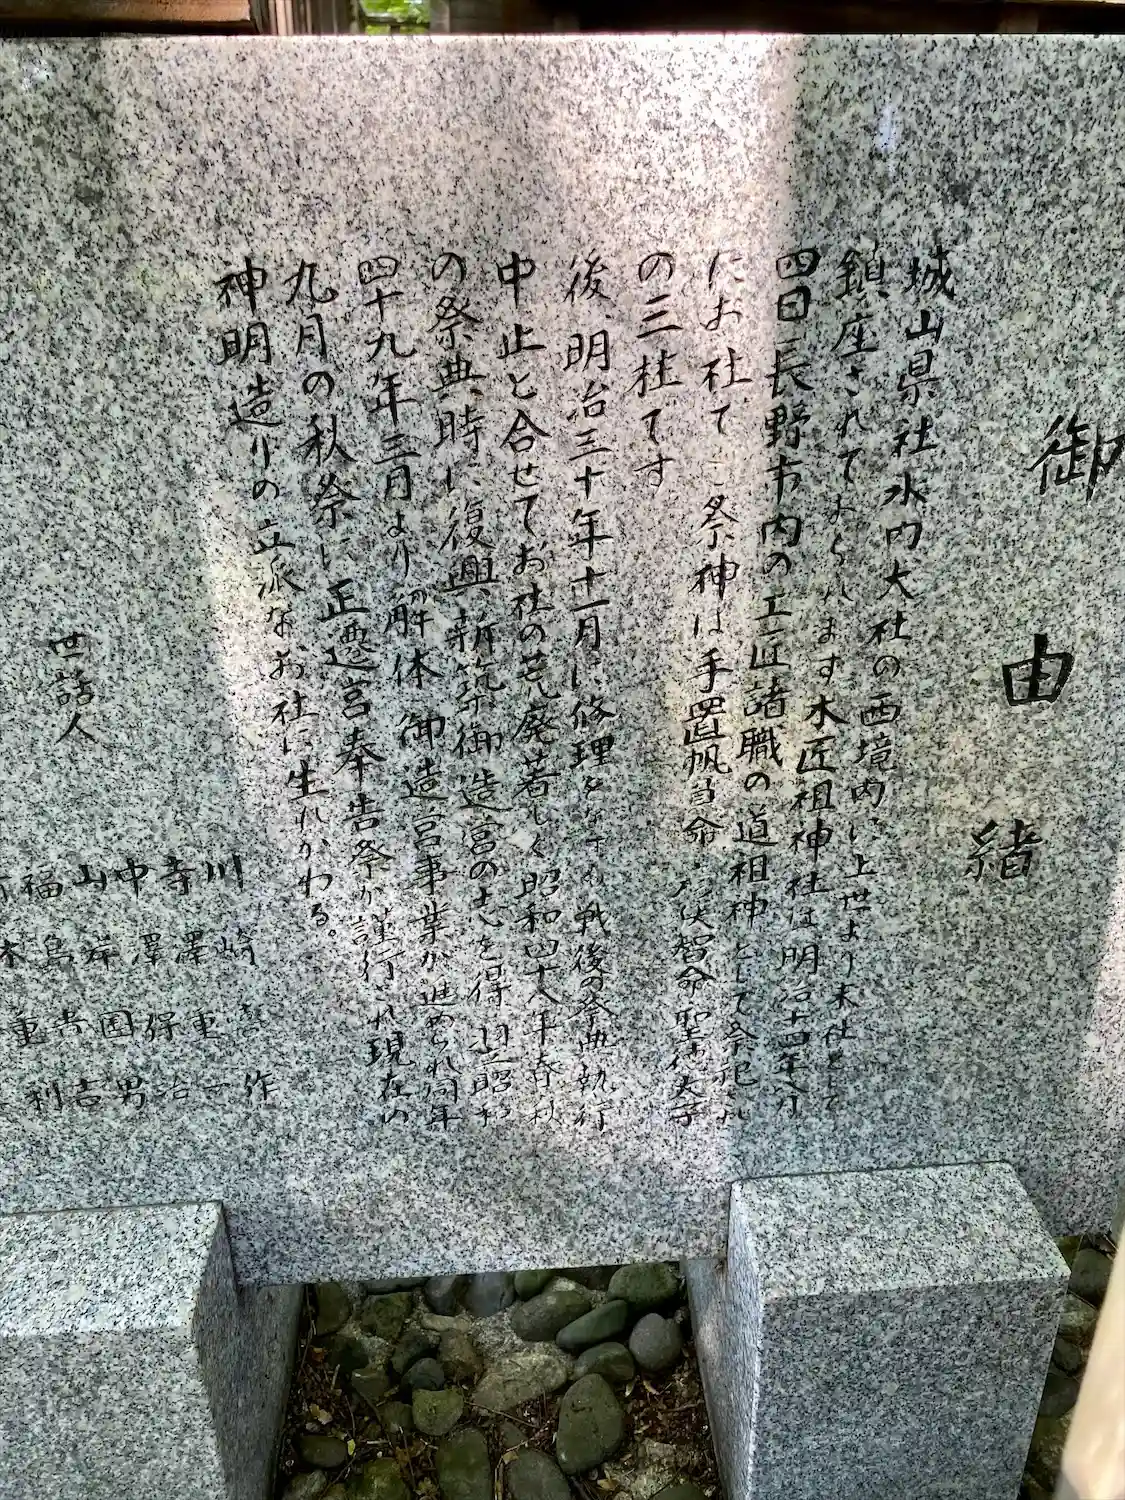 御由緒
城山県社水内大社の西境内に上世より末社として
鎮座されておられます木匠祖神社は明治十四年八月
四日長野市内の工匠諸職の道祖神として祭祀
にお社で ご祭神は手置帆負命 彦狭智命 聖徳太子
の三柱です
後、明治三十年十一月に修理をなされ戦後の祭典執行
中止と合せてお社の荒廃著しく昭和四十八年春秋
の祭典時に復興新築御造宮の志を得 翌昭和
四十九年三月より解体御造宮事業が進められ同年
九月の秋祭に正遷宮奉告祭が謹行され現在の
神明造りの立派なお社に生れかわる。
世話人
川崎喜作
寺澤重一
中澤保治
山岸国男
福島寿吉
重利